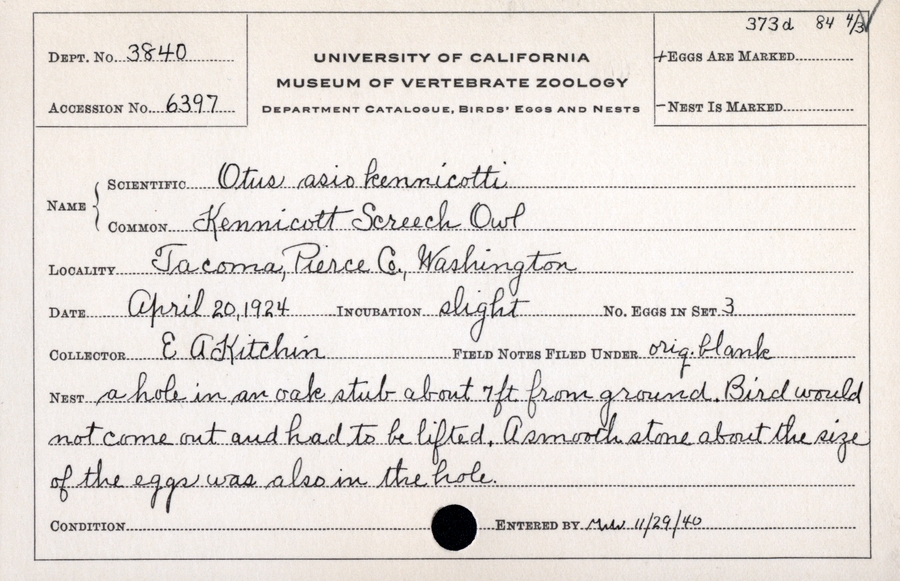 373d 84 4/3
Dept. No. 3840
UNIVERSITY OF CALIFORNIA
+Eggs Are Marked
MUSEUM OF VERTEBRATE ZOOLOGY
Accession No. 6397
Department Catalogue, Birds' Eggs and Nests
-Nest Is Marked
Name { Scientific Otus asio kennicotti
Common Kennicott Screech Owl
Locality Tacoma, Pierce Co., Washington
Date April 20, 1924 Incubation slight No. Eggs in Set 3
Collector E A Kitchin Field Notes Filed Under orig. blank
Nest a hole in an oak stub about 7ft from ground. Bird would
not come out and had to be lifted. A smooth stone about the size
of the eggs was also in the hole.
Condition Entered by 11/29/40